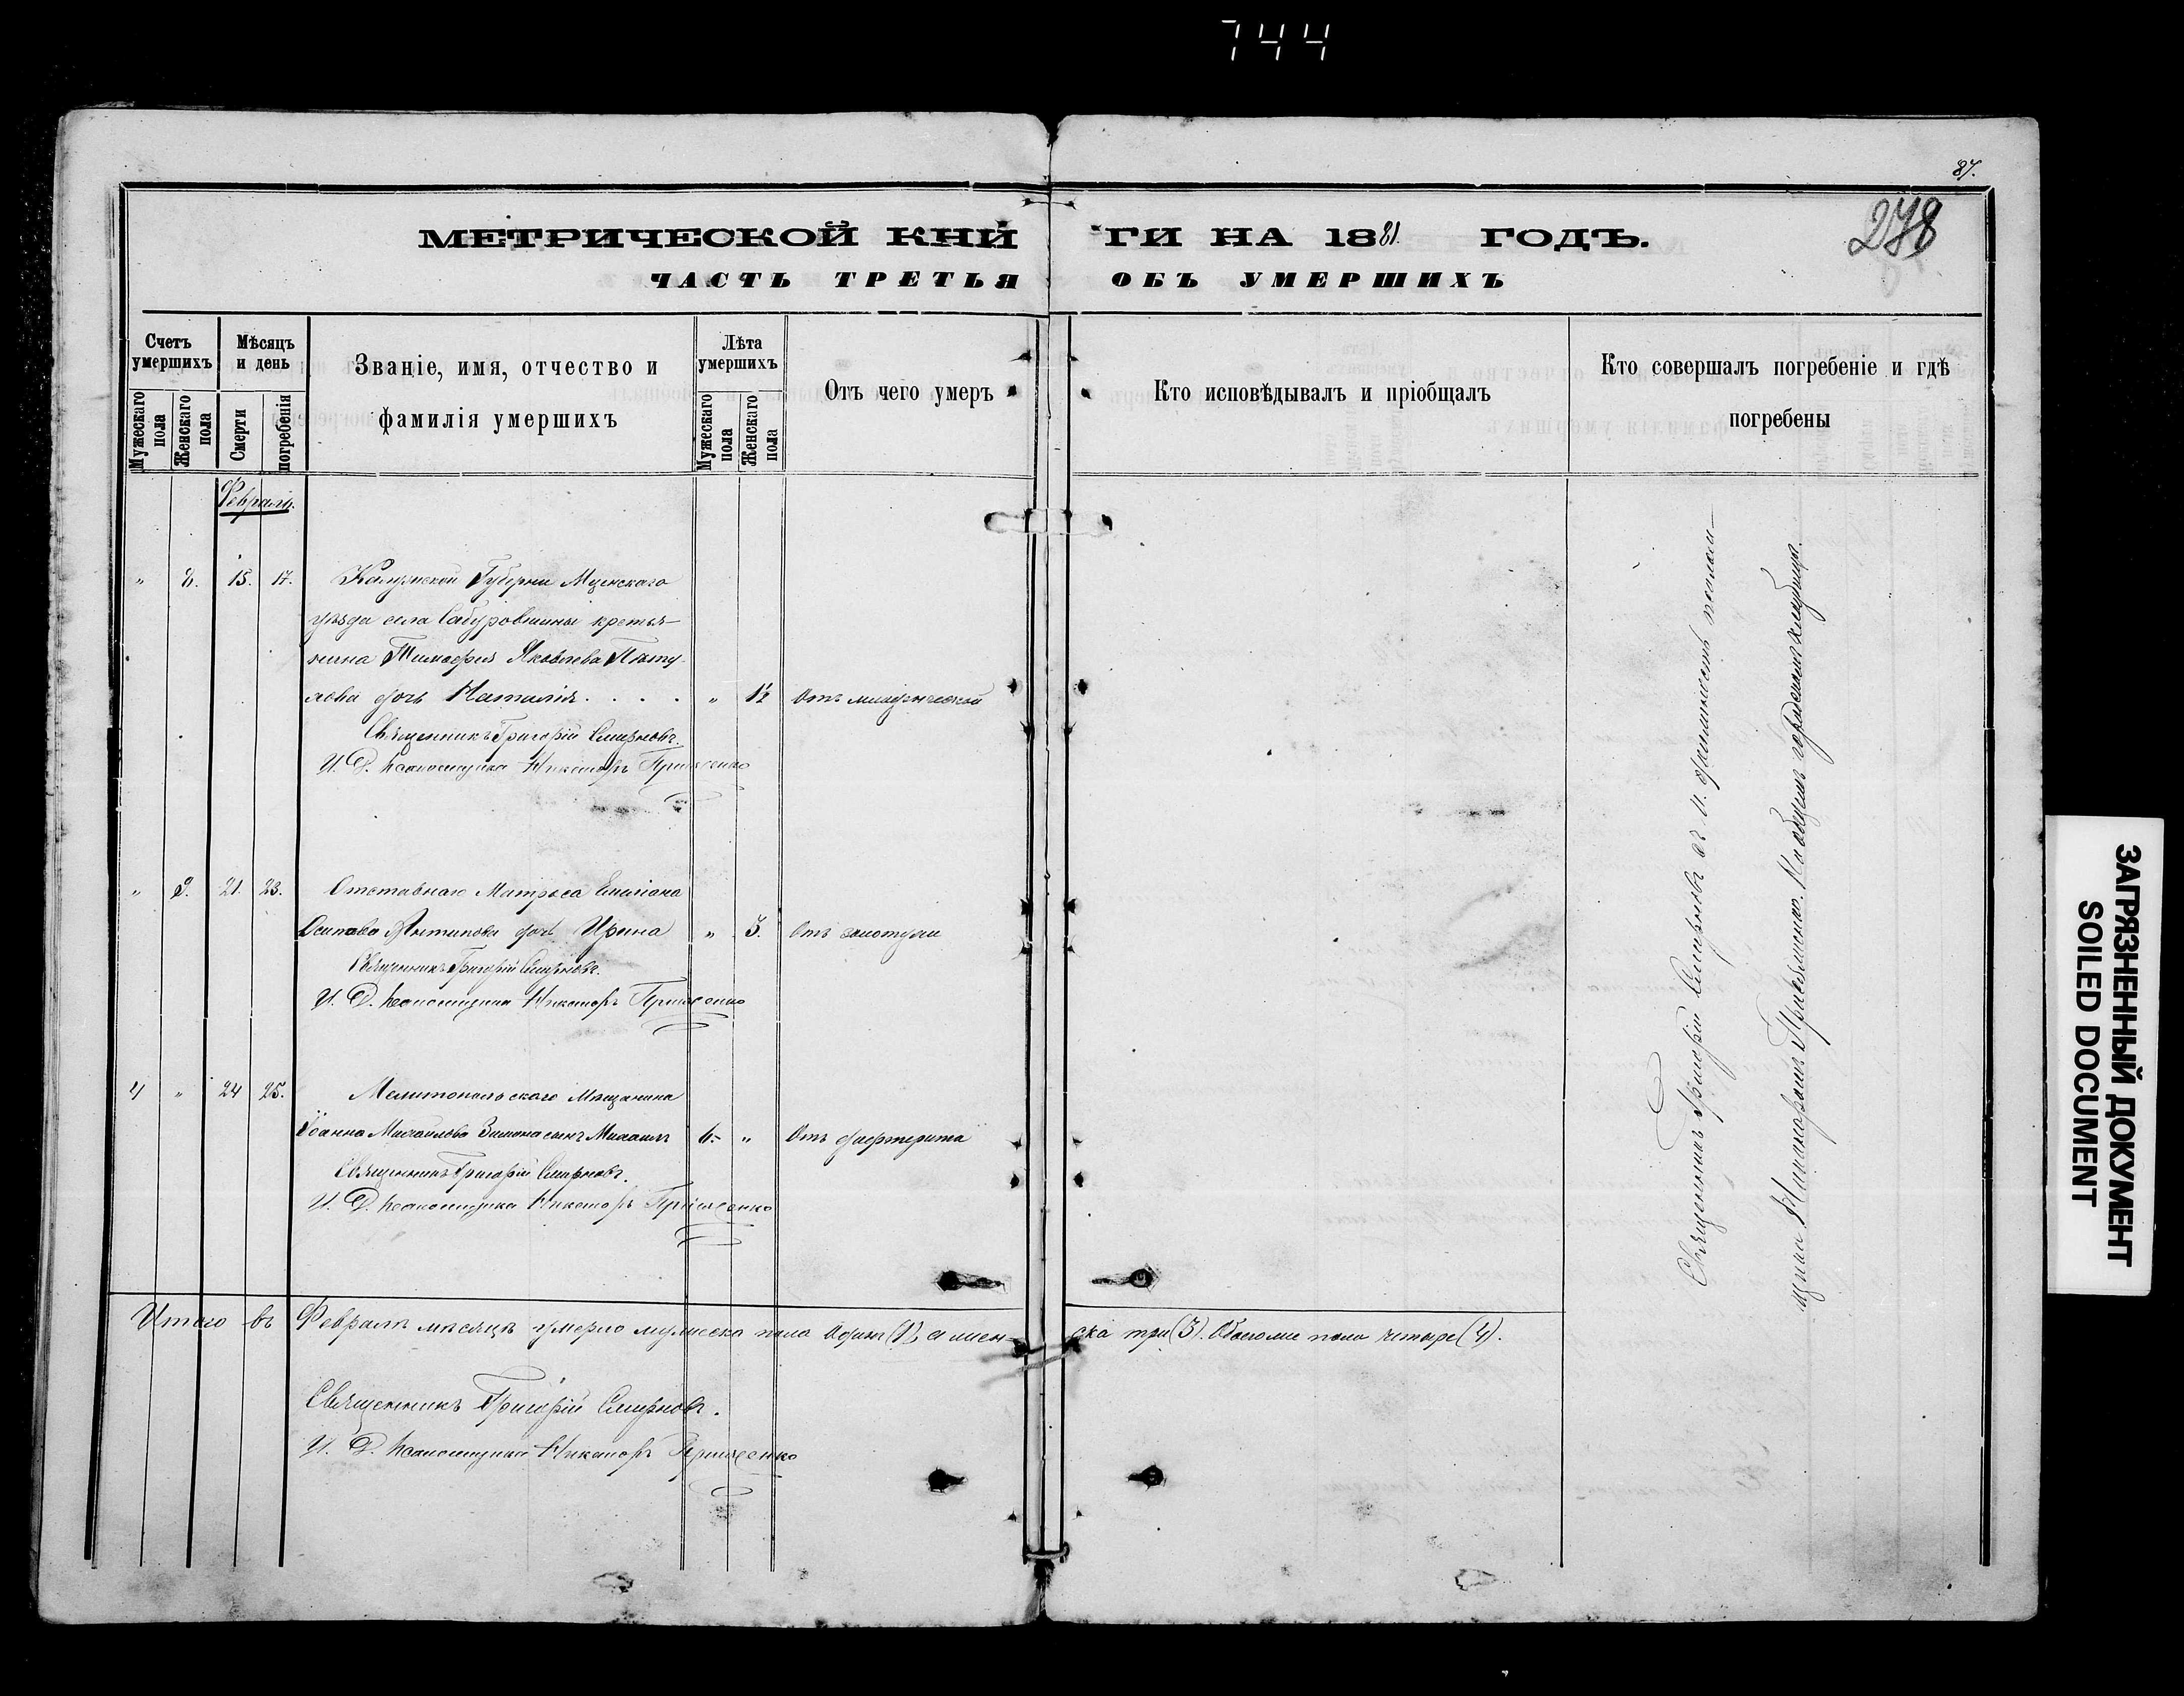 744
87.
278
МЕТРИЧЕСКОЙ КНИ ГИ НА 1881. ГОДЪ.
ЧАСТЬ ТРЕТЬЯ ОБЪ УМЕРШИХЪ
Счетъ умершихъ
Мужескаго пола
Женскаго пола
Мѣсяцъ и день
Смерти
погребенія
Званіе, имя, отчество и
фамилія умершихъ
Лѣта умершихъ
Мужескаго пола
Женскаго пола
Отъ чего умеръ
Кто исповѣдывалъ и пріобщалъ
Кто совершалъ погребеніе и гдѣ
погребены
Февраль.
" 2. 15. 17. Калужской Губерни Мценскаго
уѣзда села Сабуровшины кресть-
янина Тимофея Яковлева
дочь Наталія . . . . " 1½ Отъ младенческой
Священникъ Григорій Смирновъ.
И. Д. Псаломщика Никаноръ
" 3. 21. 23. Отставнаго Матроса Емиліана
Осипова Антипова дочь Ирина " 3. Отъ золотухи
Священникъ Григорій Смирновъ.
И. Д. Псаломщика Никаноръ
4 " 24 25. Мелитопольскаго Мѣщанина
Іоанна Михайлова сынъ Михаилъ 6. " Отъ дифтерита
Священникъ Григорій Смирновъ.
И. Д. Псаломщика Никаноръ
Итого въ Февралѣ мѣсяцѣ умерло мужеска пола Одинъ (1), а жен- ска три (3). Обоего пола четыре (4).
Священникъ Григорій Смирновъ.
И. Д. Псаломщика Никаноръ
Священникъ Григорій Смирновъ съ и. должность псалом-
щика Никаноромъ На общемъ городскомъ кладбищѣ.
ЗАГРЯЗНЕННЫЙ ДОКУМЕНТ
SOILED DOCUMENT